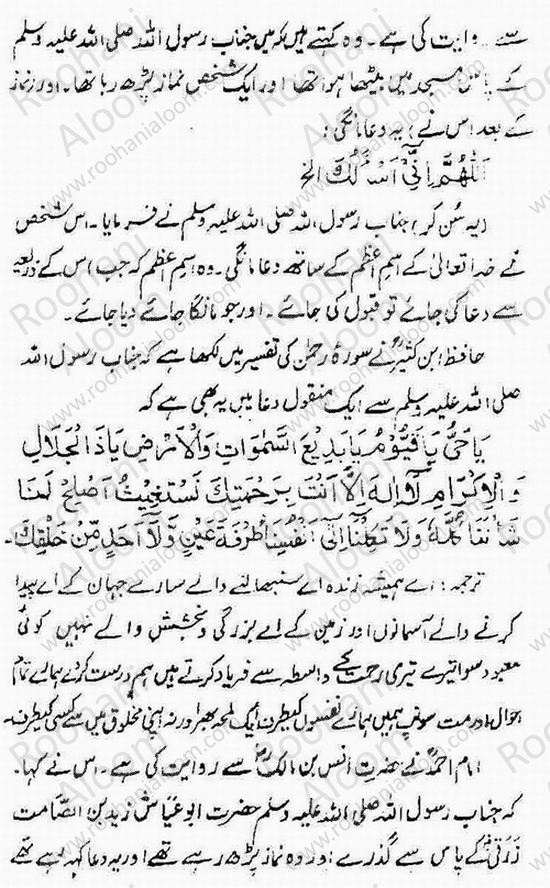 سے روایت کی ہے۔ وہ کہتے ہیں کہ میں جناب رسول اللہ صلی اللہ علیہ وسلم
کے پاس مسجد میں بیٹھا ہوا تھا اور ایک شخص نماز پڑھ رہا تھا۔ اور نماز
کے بعد اس نے یہ دعا مانگی:
اَللّٰهُمَّ اِنِّیْ اَسْأَلُكَ الخ
(یہ سُن کر) جناب رسول اللہ صلی اللہ علیہ وسلم نے فرمایا۔ اس شخص
نے خدا تعالیٰ کے اسمِ اعظم کے ساتھ دعا مانگی۔ وہ اسمِ اعظم کہ جب اس کے ذریعہ
سے دعا کی جائے تو قبول کی جائے۔ اور جو مانگا جائے دیا جائے۔
حافظ ابن کثیرؒ نے سورۂ رحمٰن کی تفسیر میں لکھا ہے کہ جناب رسول اللہ
صلی اللہ علیہ وسلم سے ایک منقول دعا میں یہ بھی ہے کہ
یَا حَیُّ یَا قَیُّوْمُ یَا بَدِیْعَ السَّمٰوَاتِ وَالْاَرْضِ یَا ذَا الْجَلَالِ
وَالْاِكْرَامِ لَآ اِلٰهَ اِلَّا اَنْتَ بِرَحْمَتِكَ نَسْتَغِیْثُ اَصْلِحْ لَنَا
شَأْنَنَا كُلَّهٗ وَلَا تَكِلْنَا اِلٰٓی اَنْفُسِنَا طَرْفَةَ عَیْنٍ وَّلَآ اَحَدٍ مِّنْ خَلْقِكَ۔
ترجمہ: اے ہمیشہ زندہ اے سنبھالنے والے سارے جہان کے اے پیدا
کرنے والے آسمانوں اور زمین کے اے بزرگی و بخشش والے نہیں کوئی
معبود سوا تیرے تیری رحمت کے واسطہ سے فریاد کرتے ہیں ہم درست کر دے ہمارے تمام
احوال اور مت سونپ ہمیں ہمارے نفسوں کیطرف ایک لمحہ بھر اور نہ اپنی مخلوق میں سے کسی کیطرف۔
امام احمدؒ نے حضرت انس بن مالکؓ سے روایت کی ہے۔ اس نے کہا۔
کہ جناب رسول اللہ صلی اللہ علیہ وسلم حضرت ابو عیاش زید بن الصّامت
زرقیؓ کے پاس سے گذرے اور وہ نماز پڑھ رہے تھے اور یہ دعا کہہ رہے تھے
Roohani Aloom
www.roohanialoom.com